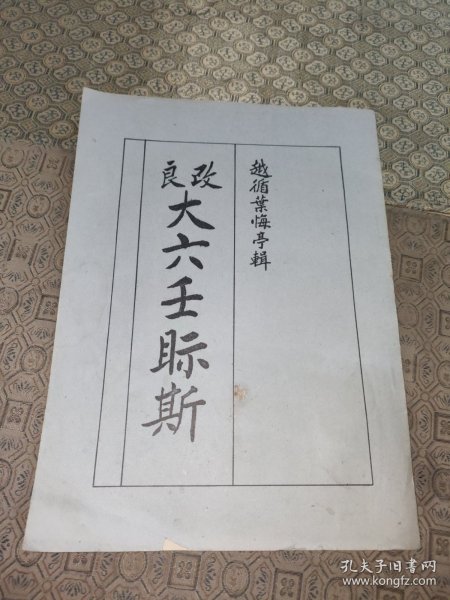 越循葉悔亭輯
改良
大六壬眎斯
孔夫子旧书网
www.kongfz.com